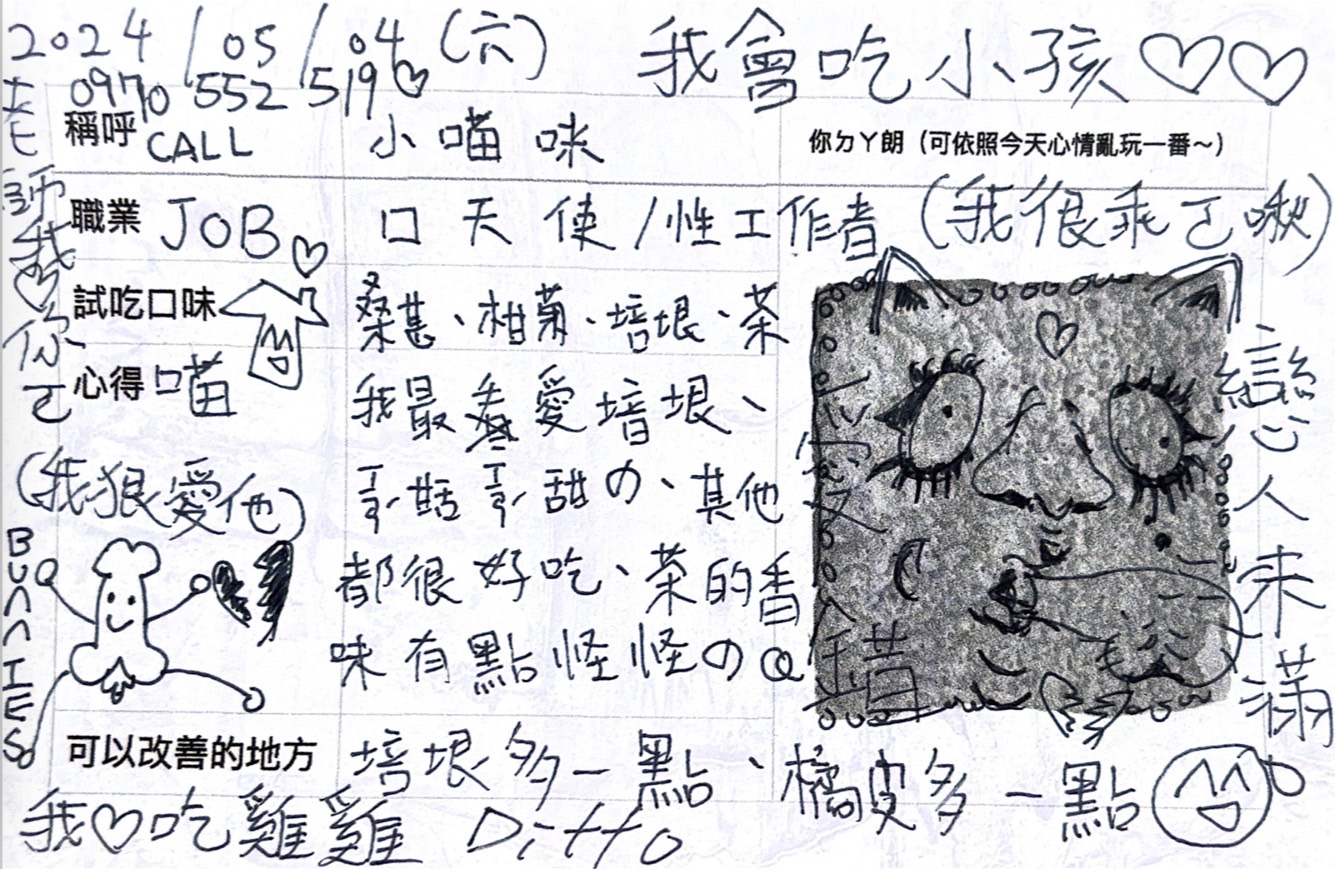 2024/05/04(六)
我會吃小孩♡♡
0970 552 519♡
稱呼 CALL 小喵咪
你ㄉㄚ朗（可依照今天心情亂玩一番～）
職業 JOB 口天使/性工作者(我很乖ㄛ啾)
試吃口味 桑甚、柑菊、培垠、茶
心得 喵 我最愛培垠、
哥甜の、其他
都很好吃、茶的香
味有點怪怪のQ
(我狠愛他)
BUNNIES
可以改善的地方 培垠多一點、橘皮多一點
我♡吃雞雞 Ditto
老師我♡你ㄛ
戀人未滿